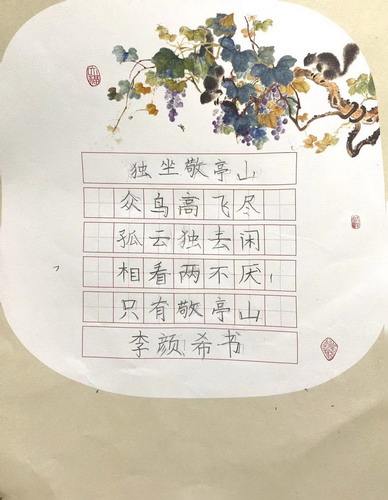 独坐敬亭山
众鸟高飞尽
孤云独去闲
相看两不厌,
只有敬亭山
李颜希书